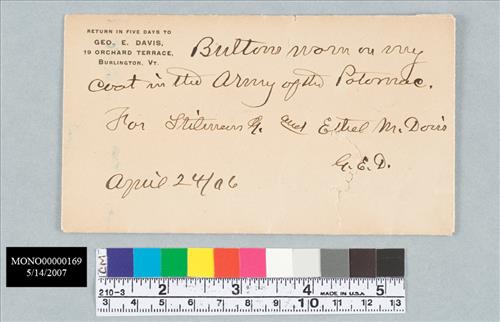 RETURN IN FIVE DAYS TO
GEO. E. DAVIS,
19 ORCHARD TERRACE,
BURLINGTON, VT.
Buttons worn on my
coat in the Army of the Potomac.
For and Ethel M. Davis
G. E. D.
April 24/06
MONO00000169
5/14/2007
CM
210-3
2 3 4 5
MADE IN U.S.A.
1 2 3 4 5 6 7 8 9 10 11 12 13